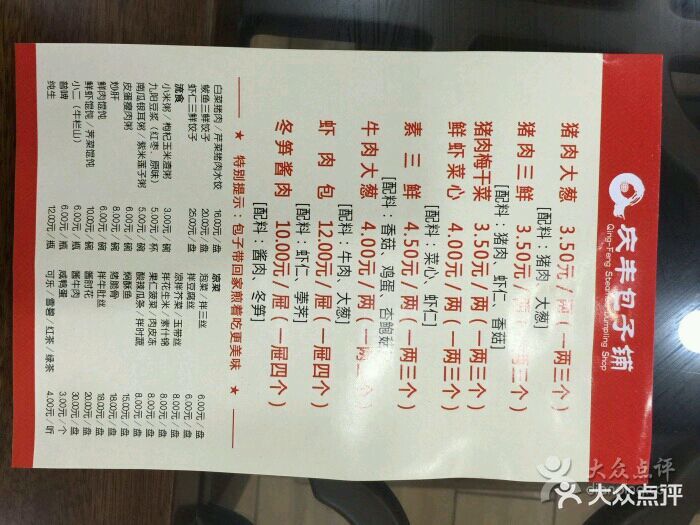 庆丰包子铺
Qing-Feng Steamed Dumpling Shop
猪肉大葱 3.50元/两(一两三个)
[配料:猪肉、大葱]
猪肉三鲜 3.50元/两(一两三个)
[配料:猪肉、虾仁、香菇]
猪肉梅干菜 3.50元/两(一两三个)
鲜虾菜心 4.00元/两(一两三个)
[配料:菜心、虾仁]
素三鲜 4.50元/两(一两三个)
[配料:香菇、鸡蛋、杏鲍菇]
牛肉大葱 4.00元/两(一两三个)
[配料:牛肉、大葱]
虾肉包 12.00元/屉(一屉四个)
[配料:虾仁、荸荠]
冬笋酱肉 10.00元/屉(一屉四个)
[配料:酱肉、冬笋]
★ 特别提示:包子带回家煎着吃更美味 ★
白菜猪肉/芹菜猪肉水饺 16.00元/盘
鲅鱼三鲜饺子 20.00元/盘
虾仁三鲜饺子 25.00元/盘
流食
小米粥/枸杞玉米渣粥 3.00元/碗
九阳豆浆(红枣、原味) 5.00元/杯
南瓜银耳粥/紫米莲子粥 5.00元/碗
皮蛋瘦肉粥 6.00元/碗
炒肝 8.00元/碗
鲜肉馄饨 6.00元/碗
鲜虾馄饨/荠菜馄饨 10.00元/碗
小二(牛栏山) 6.00元/瓶
普啤 6.00元/瓶
纯生 12.00元/瓶
凉菜
泡菜/拌三丝 6.00元/盘
拌豆腐丝 6.00元/盘
凉拌芥菜/玉带丝 8.00元/盘
拌花生米/素什锦 8.00元/盘
果仁菠菜/肉皮冻 8.00元/盘
酸辣瓜条/拌时蔬 8.00元/盘
焖酥鱼 15.00元/盘
猪脆骨 18.00元/盘
拌牛肚丝 18.00元/盘
酱肘花 20.00元/盘
酱牛肉 30.00元/盘
咸鸭蛋 3.00元/个
可乐/雪碧/红茶/绿茶 4.00元/听
大众点评
大众点评